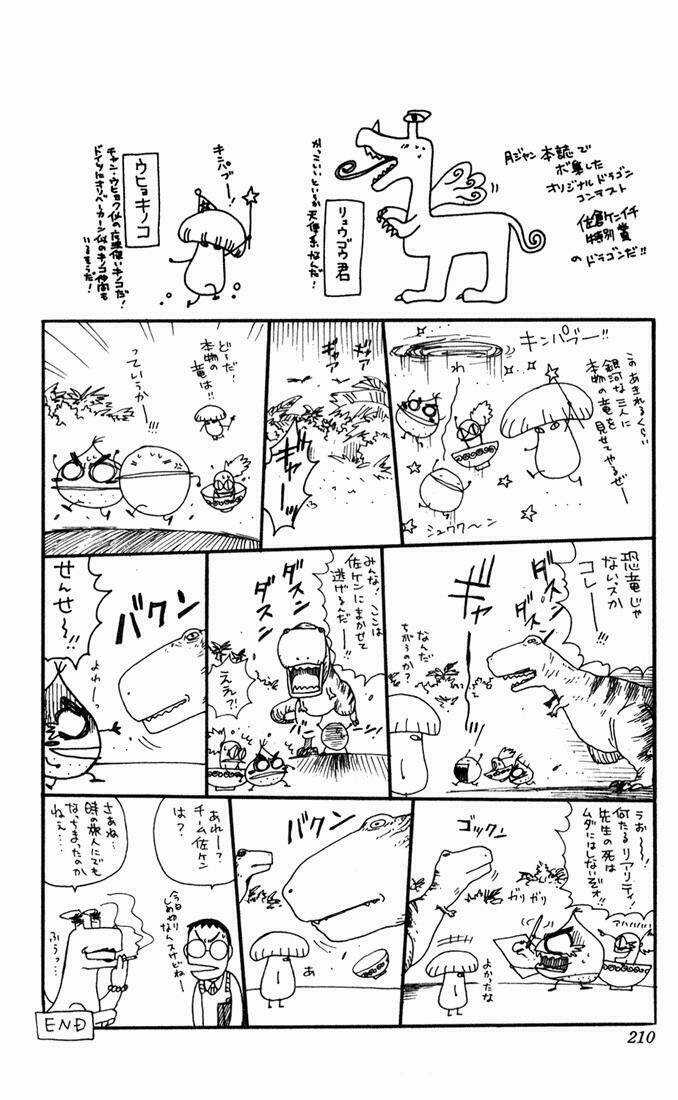 月ジャン本誌で
ボ集した
オリジナルドラゴン
コンテスト
佐倉ケンイチ
特別賞
のドラゴンだ!!
リュウゴウ君
かっこいいというか
天使系なんだ!
キンパブー!
ウヒョキノコ
チャン・ウヒョク似の魔法使いキノコだ!
ドイツにオリバーカーン似のキノコ仲間も
いるそうだ!
キンパブー!!
このあきれるくらい
銀河な三人に
本物の竜を
見せてやるぜー
わ
シュワワ〜ン
ギャア
ギャア
ギャーッ
ど〜だ!
本物の
竜は!!
っていうか
!!
恐竜じゃ
ないスか
コレー!!
ダスン
ダスン
ギャー
なんだ
ちがうのか?
みんな!ここは
佐ケンにまかせて
逃げるんだー!!
ダスン
ダスン
ええ?!
バクン
せんせ〜!!
よれーっ
うぉ〜〜!
何たるリアリティ!
先生の死は
ムダにはしないぞォ!!
アハハハ!!
ガリガリ
よかったな
ゴックン
バクン
あ
あれー?
チーム佐ケン
は?
今日やり
しめきりなんスけどねー
さあね…
時の旅人にでも
なっちまったのか
ねぇ…
ふぅっ…
END
210